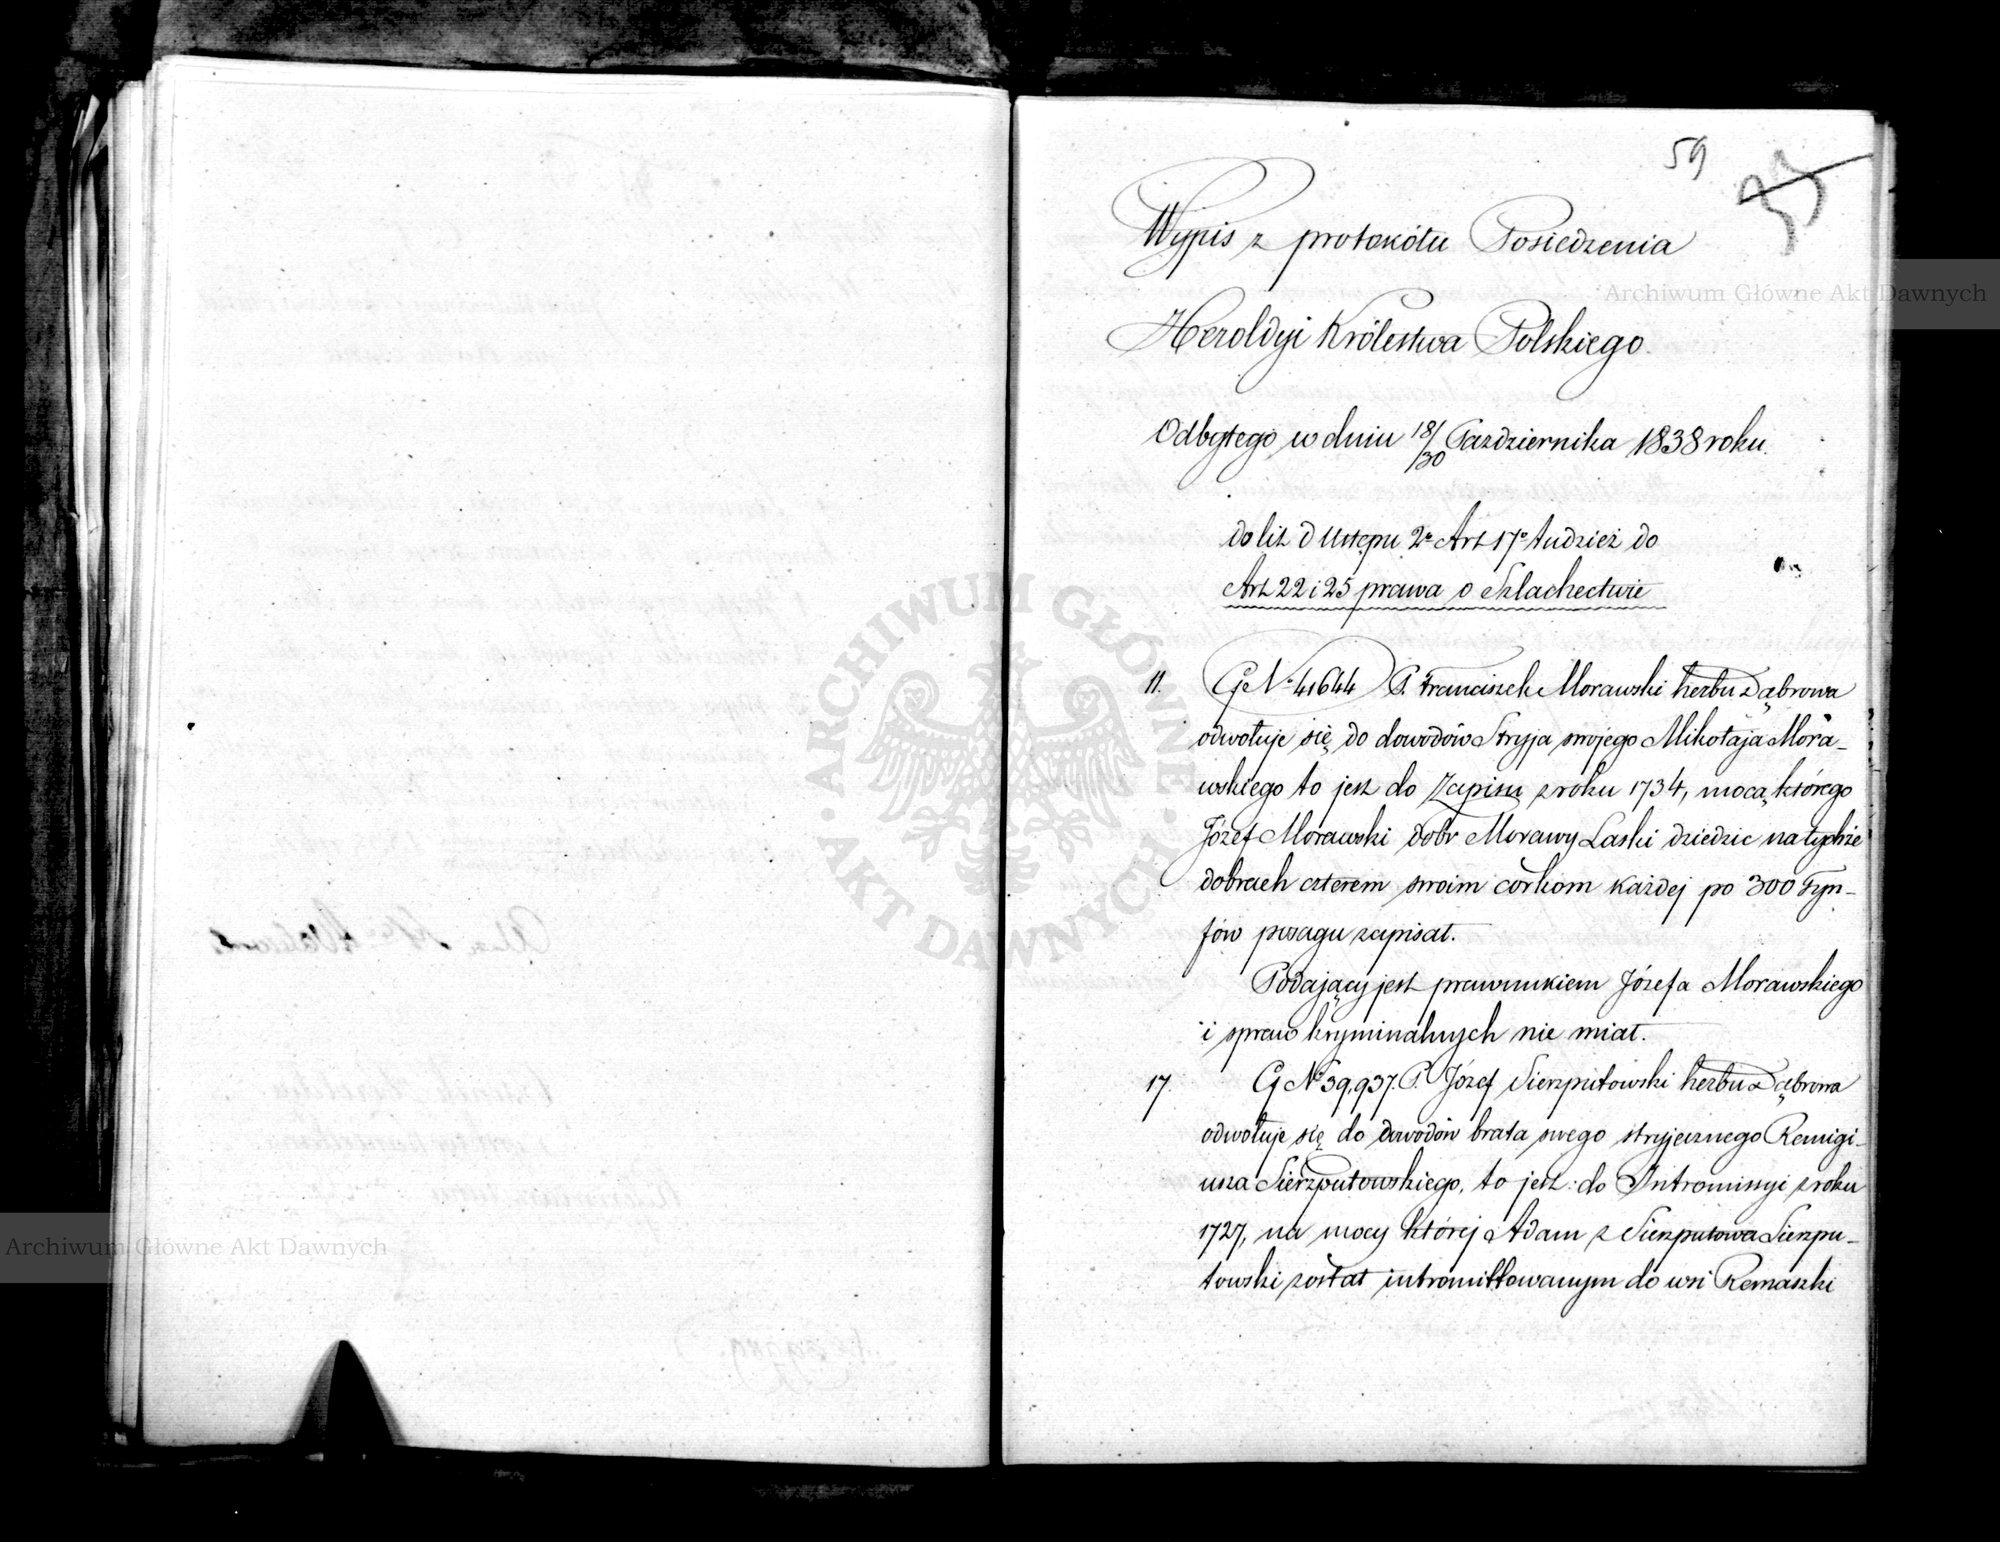 59
Wypis z protokółu Posiedzenia
Heroldyi Królestwa Polskiego.
Odbytego w dniu 18/30 Października 1838 roku.
do lit d Ustępu 2º Art 17º tudzież do
Art 22 i 25 prawa o Szlachectwie
11. G Nº 41644 P. Franciszek Morawski herbu Dąbrowa
odwołuje się do dowodów Stryja swojego Mikołaja Mora-
wskiego to jest do Zapisu z roku 1734, mocą którego
Józef Morawski dobr Morawy Laski dziedzic na tychże
dobrach czterem swoim córkom każdej po 300 Tyn-
fów posagu zapisał.
Podający jest prawnukiem Józefa Morawskiego
i spraw kryminalnych nie miał.
17. G Nº 39,937. P. Józef Sierzputowski herbu Dąbrowa
odwołuje się do dowodów brata swego stryjecznego Remigi-
usza Sierzputowskiego, to jest: do Intromissyi z roku
1727, na mocy której Adam z Sierzputowa Sierzpu-
towski został intromittowanym do wsi Remaszki
Archiwum Główne Akt Dawnych
Archiwum Główne Akt Dawnych
ARCHIWUM GŁÓWNE AKT DAWNYCH